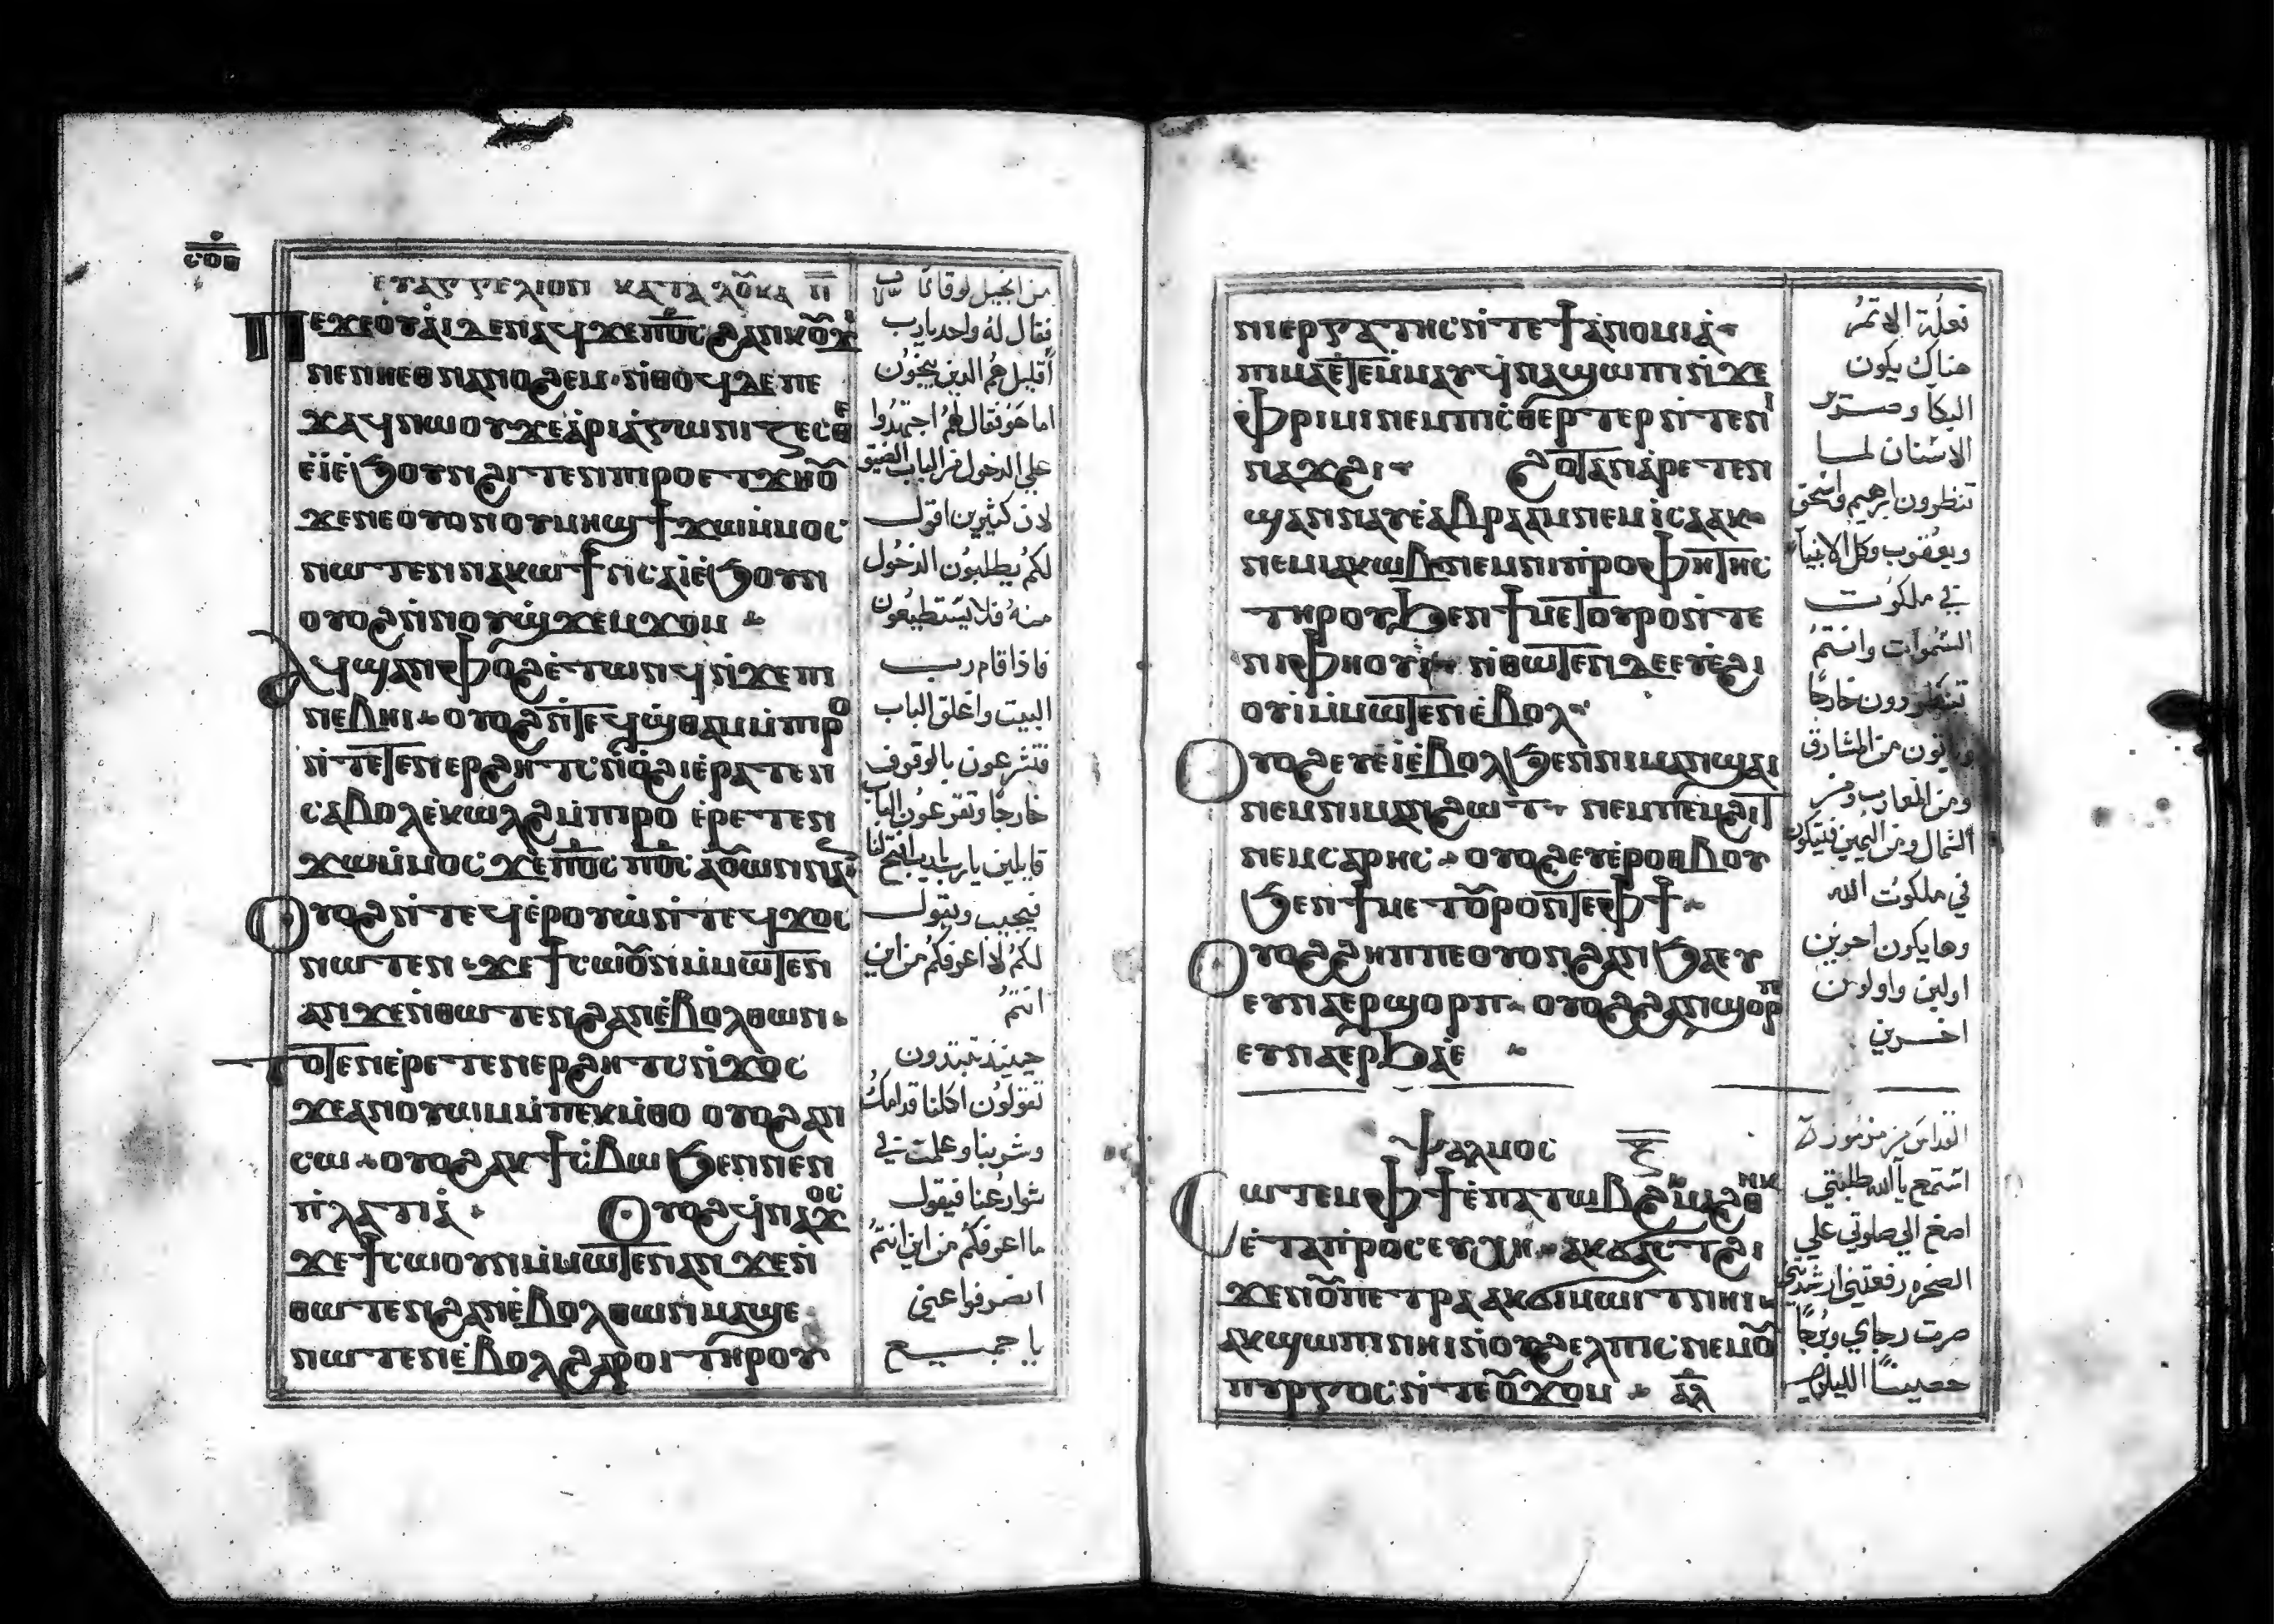 ⲉⲩⲁⲅⲅⲉⲗⲓⲟⲛ ⲕⲁⲧⲁ ⲗⲟⲩⲕⲁ ⲡ
ⲡⲉϫⲉ ⲟⲩⲁⲓ ⲇⲉ ⲛⲁϥ ϫⲉ ⲡϭⲟⲓⲥ ϩⲁⲛⲕⲟⲩϫⲓ
ⲛⲉ ⲛⲏⲉⲑⲛⲁⲛⲟϩⲉⲙ ⲛⲑⲟϥ ⲇⲉ ⲡⲉ
ϫⲁϥ ⲛⲱⲟⲩ ϫⲉ ⲁⲣⲓⲁⲅⲱⲛⲓⲍⲉⲥⲑⲉ
ⲉⲓ ⲉϧⲟⲩⲛ ϩⲓⲧⲉⲛ ⲡⲓⲣⲟ ⲉⲧϫⲏⲟⲩ
ϫⲉ ⲛⲉ ⲟⲩⲟⲛ ⲟⲩⲙⲏϣ ϯϫⲱ ⲙⲙⲟⲥ
ⲛⲱⲧⲉⲛ ⲛⲁⲕⲱϯ ⲛⲥⲁ ⲓ ⲉϧⲟⲩⲛ
ⲟⲩⲟϩ ⲛⲛⲟⲩϣϫⲉⲙϫⲟⲙ
ⲁϥϣⲁⲛⲫⲟϩ ⲉⲧⲱⲛϥ ⲛϫⲉ ⲡⲓ
ⲛⲉⲃⲏⲓ ⲟⲩⲟϩ ⲛⲧⲉϥϣⲑⲁⲙ ⲙⲡⲓⲣⲟ
ⲛⲧⲉⲧⲉⲛⲉⲣϩⲏⲧⲥ ⲛⲟϩⲓ ⲉⲣⲁⲧⲉⲛ
ⲥⲁⲃⲟⲗ ⲉⲕⲱⲗϩ ⲙⲡⲓⲣⲟ ⲉⲣⲉⲧⲉⲛ
ϫⲱ ⲙⲙⲟⲥ ϫⲉ ⲡϭⲟⲓⲥ ⲡϭⲟⲓⲥ ⲁⲟⲩⲱⲛ ⲛⲁⲛ
ⲟⲩⲟϩ ⲛⲧⲉϥⲉⲣⲟⲩⲱ ⲛⲧⲉϥϫⲟⲥ
ⲛⲱⲧⲉⲛ ϫⲉ ϯⲥⲱⲟⲩⲛ ⲙⲙⲱⲧⲉⲛ
ⲁⲛ ϫⲉ ⲛⲑⲱⲧⲉⲛ ϩⲁⲛⲉⲃⲟⲗ ⲑⲱⲛ
ⲧⲟⲧⲉ ⲉⲣⲉⲧⲉⲛⲉⲣϩⲏⲧⲥ ⲛϫⲟⲥ
ϫⲉ ⲁⲛⲟⲩⲱⲙ ⲙⲡⲉⲕⲙⲑⲟ ⲟⲩⲟϩ ⲁⲛ
ⲥⲱ ⲟⲩⲟϩ ⲁⲕϯⲥⲃⲱ ϧⲉⲛ ⲛⲉⲛ
ⲡⲗⲁⲧⲓⲁ ⲟⲩⲟϩ ϥⲛⲁϫⲟⲥ
ϫⲉ ϯⲥⲱⲟⲩⲛ ⲙⲙⲱⲧⲉⲛ ⲁⲛ ϫⲉ ⲛ
ⲑⲱⲧⲉⲛ ϩⲁⲛⲉⲃⲟⲗ ⲑⲱⲛ ⲙⲁϣⲉ
ⲛⲱⲧⲉⲛ ⲉⲃⲟⲗ ϩⲁⲣⲟⲓ ⲧⲏⲣⲟⲩ
من انجيل لوقا
فقال له واحد يارب
أقليل هم الذين ينجون
اما هو فقال لهم اجتهدوا
علي الدخول من الباب الضيق
لان كثيرين اقول
لكم يطلبون الدخول
منه فلا يستطيعون
فاذا قام رب
البيت واغلق الباب
فتشرعون بالوقوف
خارجا وتقرعون الباب
قايلين يارب يارب افتح لنا
فيجيب ويقول
لكم لا اعرفكم من اين
انتم
حينيذ تبتدون
تقولون اكلنا قدامك
وشربنا وعلمت في
شوارعنا فيقول
ما اعرفكم من اين انتم
انصرفوا عني
يا جميع
ⲛⲓⲉⲣⲅⲁⲧⲏⲥ ⲛⲧⲉ ϯⲁⲛⲟⲙⲓⲁ
ⲡⲓⲙⲁ ⲉⲧⲉⲙⲙⲁⲩ ϥⲛⲁϣⲱⲡⲓ ⲛϫⲉ
ⲫⲣⲓⲙⲓ ⲛⲉⲙ ⲡⲓⲥⲑⲉⲣⲧⲉⲣ ⲛⲧⲉ ⲛⲓ
ⲛⲁϫϩⲓ ϩⲟⲧⲁⲛ ⲁⲣⲉⲧⲉⲛ
ϣⲁⲛⲛⲁⲩ ⲉⲁⲃⲣⲁⲁⲙ ⲛⲉⲙ ⲓⲥⲁⲁⲕ
ⲛⲉⲙ ⲓⲁⲕⲱⲃ ⲛⲉⲙ ⲛⲓⲡⲣⲟⲫⲏⲧⲏⲥ
ⲧⲏⲣⲟⲩ ϧⲉⲛ ϯⲙⲉⲧⲟⲩⲣⲟ ⲛⲧⲉ
ⲛⲓⲫⲏⲟⲩⲓ ⲛⲑⲱⲧⲉⲛ ⲇⲉ ⲉⲩⲉϩⲓ
ⲟⲩⲓ ⲙⲙⲱⲧⲉⲛ ⲉⲃⲟⲗ
ⲟⲩⲟϩ ⲉⲩⲉⲓ ⲉⲃⲟⲗ ϧⲉⲛ ⲛⲓⲙⲁⲛϣⲁⲓ
ⲛⲉⲙ ⲛⲓⲙⲁⲛϩⲱⲧⲡ ⲛⲉⲙ ⲡⲉⲙϩⲓⲧ
ⲛⲉⲙ ⲥⲁⲣⲏⲥ ⲟⲩⲟϩ ⲉⲩⲉⲣⲟⲑⲃⲟⲩ
ϧⲉⲛ ϯⲙⲉⲧⲟⲩⲣⲟ ⲛⲧⲉ ⲫϯ
ⲟⲩⲟϩ ϩⲏⲡⲡⲉ ⲟⲩⲟⲛ ϩⲁⲛϧⲁⲉⲩ
ⲉⲩⲛⲁⲉⲣϣⲟⲣⲡ ⲟⲩⲟϩ ϩⲁⲛϣⲟⲣⲡ
ⲉⲩⲛⲁⲉⲣϧⲁⲉ
ⲯⲁⲗⲙⲟⲥ ⲝ
ⲥⲱⲧⲉⲙ ⲫϯ ⲉⲡⲁⲧⲱⲃϩ ⲙⲁϩⲑⲏⲕ
ⲉⲧⲁⲡⲣⲟⲥⲉⲩⲭⲏ ⲁⲕϭⲁⲥⲧ ϩⲓ
ϫⲉⲛ ⲟⲩⲡⲉⲧⲣⲁ ⲁⲕϭⲓⲙⲱⲓⲧ ⲛⲏⲓ
ⲁⲕϣⲱⲡⲓ ⲛⲏⲓ ⲛⲟⲩϩⲉⲗⲡⲓⲥ ⲛⲉⲙ ⲟⲩ
ⲡⲩⲣⲅⲟⲥ ⲛⲧⲉ ⲟⲩϫⲟⲙ ⲁⲗ
فعلة الاثم
هناك يكون
البكا وصرير
الاسنان لما
تنظرون ابرهيم واسحق
ويعقوب وكل الانبيا
في ملكوت
السموات وانتم
خارجا
وياتون من المشارق
ومن المغارب ومن
الشمال ومن اليمين فيتكون
في ملكوت الله
وها يكون اخرين
اولين واولون
اخرين
القداس من مزمور
استمع يا الله طلبتي
اصغ الي صلوتي علي
الصخره رفعتني ارشدتني
صرت رجاي وبرجا
حصينا الليلويا